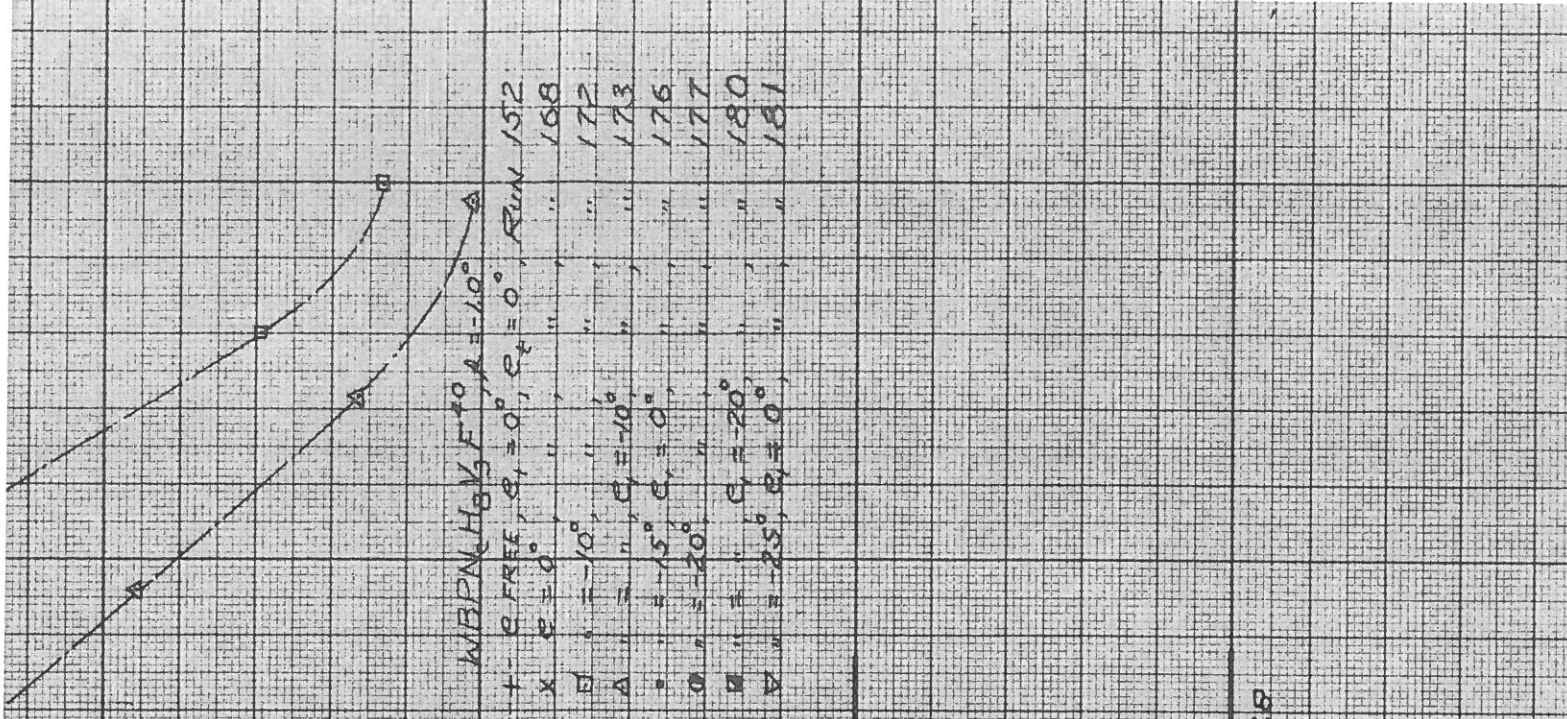 WBPN_c H_8 V_3 F^40, = -1.0°
+ - e FREE, e_t = 0°, e_t = 0°, RUN 152
x e = 0°, ", ", " 168
□ " = -10°, ", ", " 172
△ " = ", e_t = -10°, ", " 173
• " = -15°, e_t = 0°, ", " 176
" = -20°, ", ", " 177
" = ", e_t = -20°, ", " 180
▽ " = -25°, e_t = 0°, ", " 181